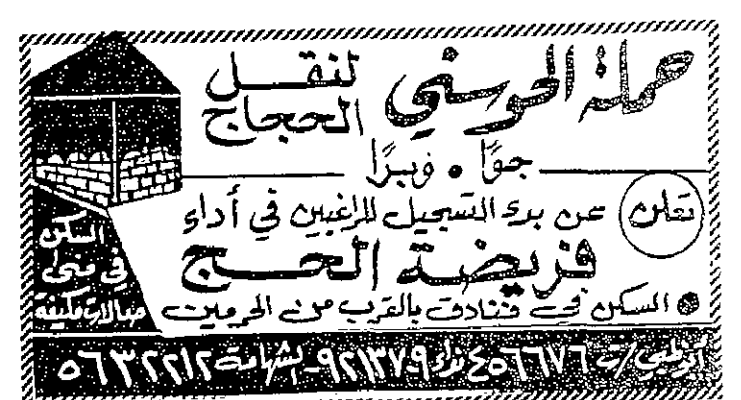 حملة الحوسني لنقل الحجاج
جوًا • وبرًا
تعلن عن بدء التسجيل للراغبين في أداء
فريضة الحج
السكن في فنادق بالقرب من الحرمين
السكن
في منى
صالات مكيفة
أبوظبي / ت ٤٥٦٦٧٦ نداء ٩٢١٣٧٩ - الشهامة ٥٦٣٢٢١٢